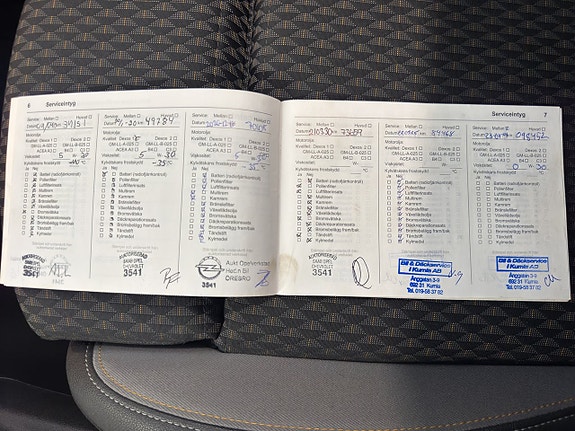 6 Serviceintyg
Service: Mellan Huvud
Motorolja:
Kvalitet: Dexos 1 Dexos 2
GM-LL-A-025 GM-LL-B-025
ACEA A3 B4 C3
Viskositet 5 W 30
Kylvätskans fryskydd °C
Ja Nej
Batteri (radio/fjärrkontroll)
Pollenfilter
Luftfilterinsats
Multirem
Kamrem
Bränslefilter
Växellådsolja
Bromsvätska
Däckreparationssats
Bromsbelägg fram/bak
Tändstift
Kylmedel
AUKTORISERAD
SAAB OPEL
CHEVROLET
3541
Service: Mellan Huvud
49784
Motorolja:
Kvalitet: Dexos 1 Dexos 2
GM-LL-A-025 GM-LL-B-025
ACEA A3 B4 C3
Viskositet 5 W 30
Kylvätskans fryskydd -25 °C
Ja Nej
Batteri (radio/fjärrkontroll)
Pollenfilter
Luftfilterinsats
Multirem
Kamrem
Bränslefilter
Växellådsolja
Bromsvätska
Däckreparationssats
Bromsbelägg fram/bak
Tändstift
Kylmedel
AUKTORISERAD
SAAB OPEL
CHEVROLET
3541
Service: Mellan Huvud
Motorolja:
Kvalitet: Dexos 1 Dexos 2
GM-LL-A-025 GM-LL-B-025
ACEA A3 B4 C3
Viskositet
Kylvätskans fryskydd
Ja Nej
Batteri (radio/fjärrkontroll)
Pollenfilter
Luftfilterinsats
Multirem
Kamrem
Bränslefilter
Växellådsolja
Bromsvätska
Däckreparationssats
Bromsbelägg fram/bak
Tändstift
Kylmedel
Aukt Opelverkstad
Hedin Bil
ÖREBRO
3541
Serviceintyg 7
Service: Mellan Huvud
Datum 210330 km 73659
Motorolja:
Kvalitet: Dexos 1 Dexos 2
GM-LL-A-025 GM-LL-B-025
ACEA A3 B4 C3
Viskositet W
Kylvätskans fryskydd °C
Ja Nej
Batteri (radio/fjärrkontroll)
Pollenfilter
Luftfilterinsats
Multirem
Kamrem
Bränslefilter
Växellådsolja
Bromsvätska
Däckreparationssats
Bromsbelägg fram/bak
Tändstift
Kylmedel
AUKTORISERAD
SAAB OPEL
CHEVROLET
3541
Service: Mellan Huvud
Motorolja:
Kvalitet: Dexos 1 Dexos 2
GM-LL-A-025 GM-LL-B-025
ACEA A3 B4 C3
Viskositet
Kylvätskans fryskydd
Ja Nej
Batteri (radio/fjärrkontroll)
Pollenfilter
Luftfilterinsats
Multirem
Kamrem
Bränslefilter
Växellådsolja
Bromsvätska
Däckreparationssats
Bromsbelägg fram/bak
Tändstift
Kylmedel
Bil & Däckservice
i Kumla AB
Änggatan 3-9
692 31 Kumla
Tel. 019-58 37 82
Service: Mellan Huvud
Motorolja:
Kvalitet: Dexos 1 Dexos 2
GM-LL-A-025 GM-LL-B-025
ACEA A3 B4 C3
Viskositet 0 W
Kylvätskans fryskydd
Ja Nej
Batteri (radio/fjärrkontroll)
Pollenfilter
Luftfilterinsats
Multirem
Kamrem
Bränslefilter
Växellådsolja
Bromsvätska
Däckreparationssats
Bromsbelägg fram/bak
Tändstift
Kylmedel
Bil & Däckservice
i Kumla AB
Änggatan 3-9
692 31 Kumla
Tel. 019-58 37 82